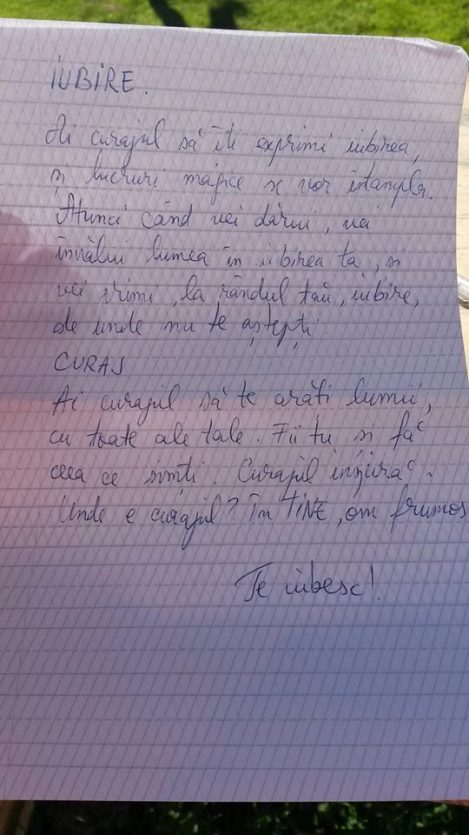 IUBIRE.
Ai curajul să îți exprimi iubirea,
și lucruri magice se vor întâmpla.
Atunci când vei dărui, vei
învălui lumea în iubirea ta, și
vei primi, la rândul tău, iubire,
de unde nu te aștepți
CURAJ
Ai curajul să te arăți lumii,
cu toate ale tale. Fii tu și fă
ceea ce simți. Curajul inspiră.
Unde e curajul? În TINE, om frumos
Te iubesc!